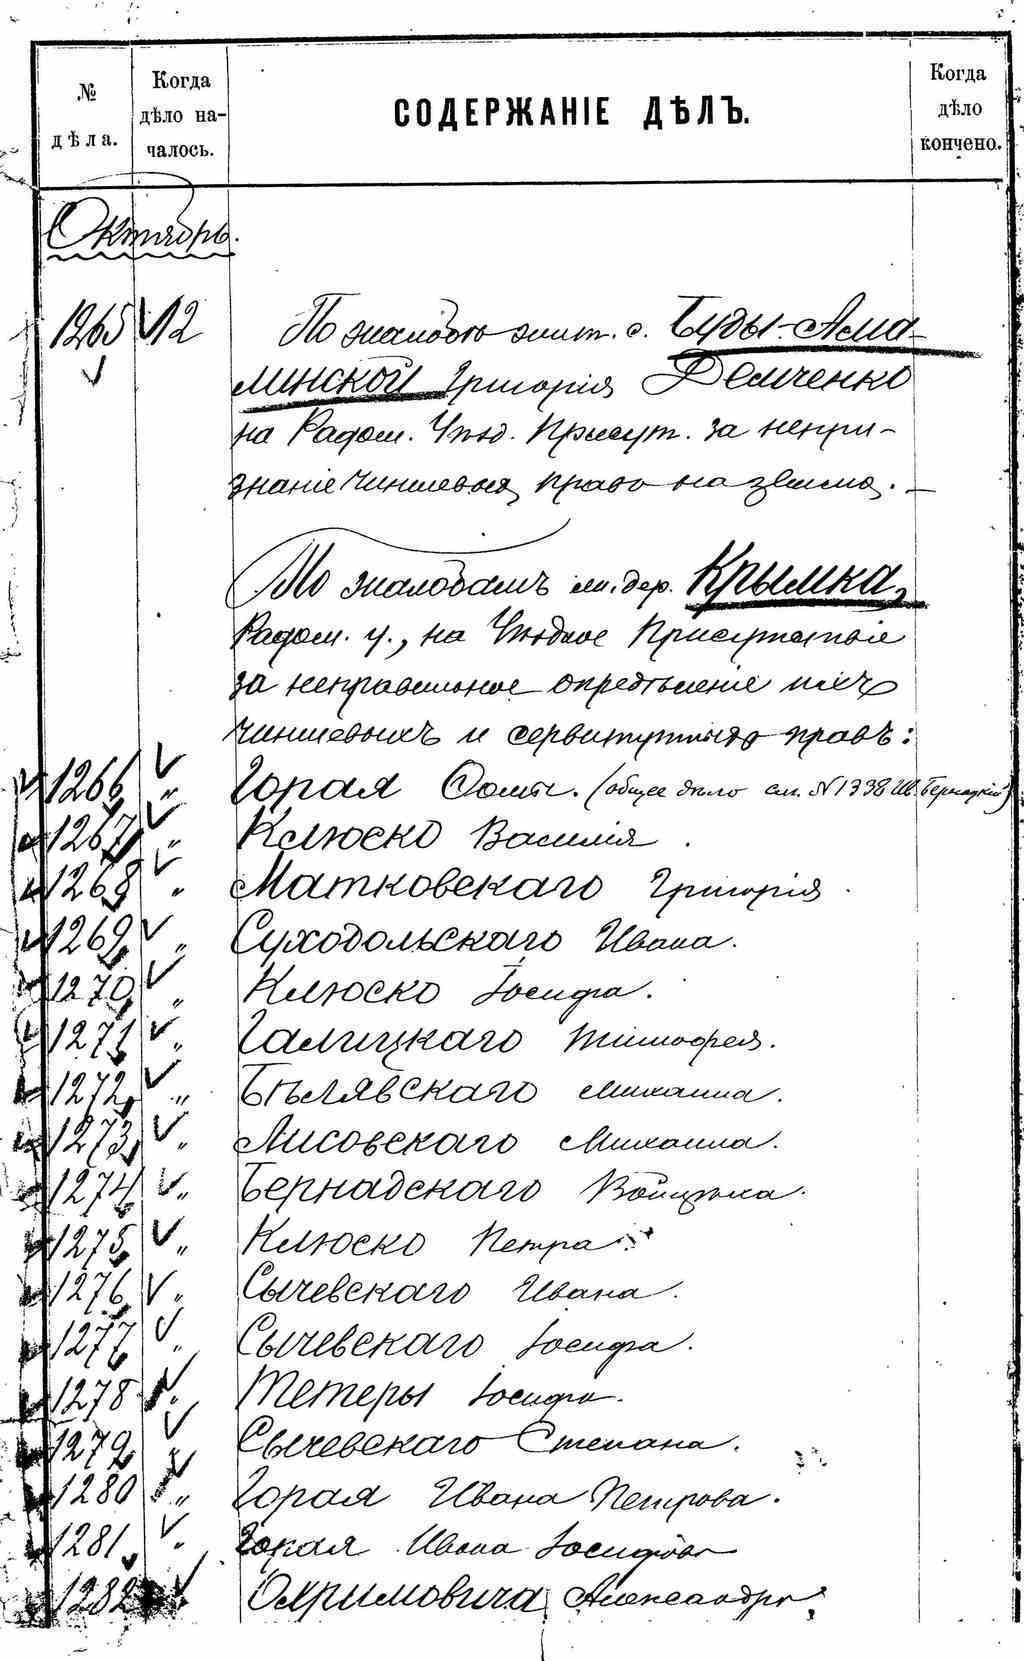 № дѣла.
Когда дѣло началось.
СОДЕРЖАНІЕ ДѢЛЪ.
Когда дѣло кончено.
Октябрь.
1265 12 По жалобѣ жит. с. Буды-Аша-
минской Григорія Демченко
на Радом. Уѣзд. Присут. за непри-
знаніе чиншевыхъ правъ на землю. —
По жалобамъ жи. дер. Крымка,
Радом. у., на Уѣздное Присутствіе
за неправильное опредѣленіе ихъ
чиншевыхъ и сервитутныхъ правъ:
1266 „ Горая Фомы. (общее дѣло см. № 1338 Ив. Бернадскій)
1267 „ Клюско Василія.
1268 „ Матковскаго Григорія.
1269 „ Суходольскаго Ивана.
1270 „ Клюско Іосифа.
1271 „ Галицкаго Тимофея.
1272 „ Бѣлявскаго Михаила.
1273 „ Лисовскаго Михаила.
1274 „ Бернадскаго Войцѣха.
1275 „ Клюско Петра.
1276 „ Сычевскаго Ивана.
1277 „ Сычевскаго Іосифа.
1278 „ Тетеры Іосифа.
1279 „ Сычевскаго Степана.
1280 „ Горая Ивана Петрова.
1281 „ Горая Ивана Іосифова
1282 Охримовича Александра,